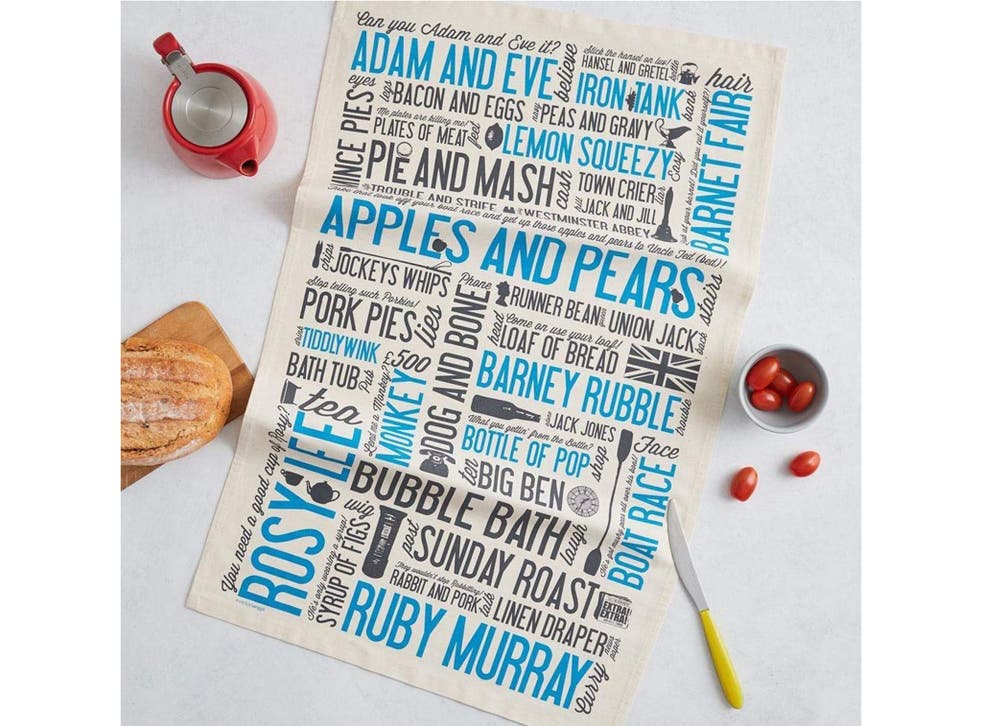 Can you Adam and Eve it?
ADAM AND EVE
believe
Stick the hansel on luv!
HANSEL AND GRETEL
kettle
hair
IRON TANK
bank
eyes
MINCE PIES
legs
BACON AND EGGS
navy
PEAS AND GRAVY
Me plates are killing me!
PLATES OF MEAT
feet
LEMON SQUEEZY
Easy
BARNET FAIR
PIE AND MASH
cash
TOWN CRIER
liar
till
JACK AND JILL
TROUBLE AND STRIFE
WESTMINSTER ABBEY
Take that look off your boat race and get up those apples and pears to Uncle Ted (bed)!
APPLES AND PEARS
stairs
chips
JOCKEYS WHIPS
Stop telling such Porkies!
PORK PIES
lies
Phone
DOG AND BONE
RUNNER BEAN
UNION JACK
back
Come on use your loaf!
head
LOAF OF BREAD
drink
TIDDLYWINK
£500
BATH TUB
Pub
Lend me a Monkey?
MONKEY
BARNEY RUBBLE
trouble
JACK JONES
What you gettin' from the Bottle?
BOTTLE OF POP
shop
Face
tea
You need a good cup of Rosy?
ROSY LEE
tell
BIG BEN
He's got mushy peas all over his boat!
BOAT RACE
BUBBLE BATH
laugh
wig
He's only wearing a syrup!
SYRUP OF FIGS
post
SUNDAY ROAST
EXTRA!
EXTRA!
They wouldn't stop Rabbiting!
RABBIT AND PORK
talk
LINEN DRAPER
news
paper
RUBY MURRAY
Curry